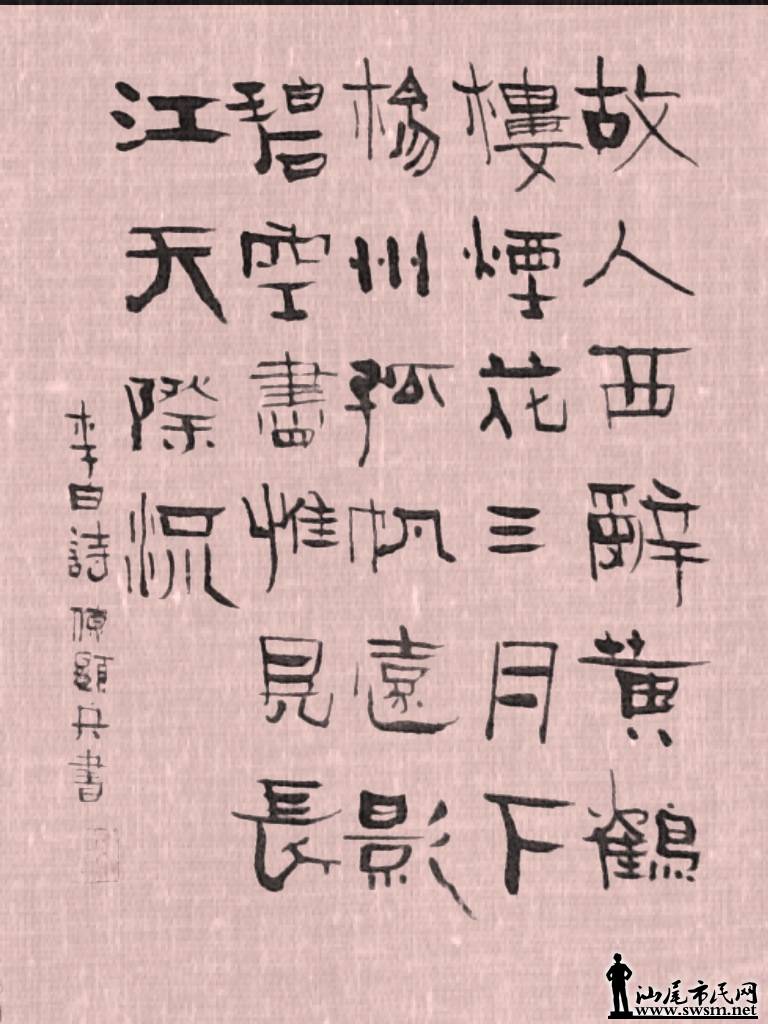 故人西辭黄鶴
樓煙花三月下
楊州孤帆遠影
碧空盡惟見長
江天際流
李白詩 陳顯兵書
汕尾市民网
www.swsm.net